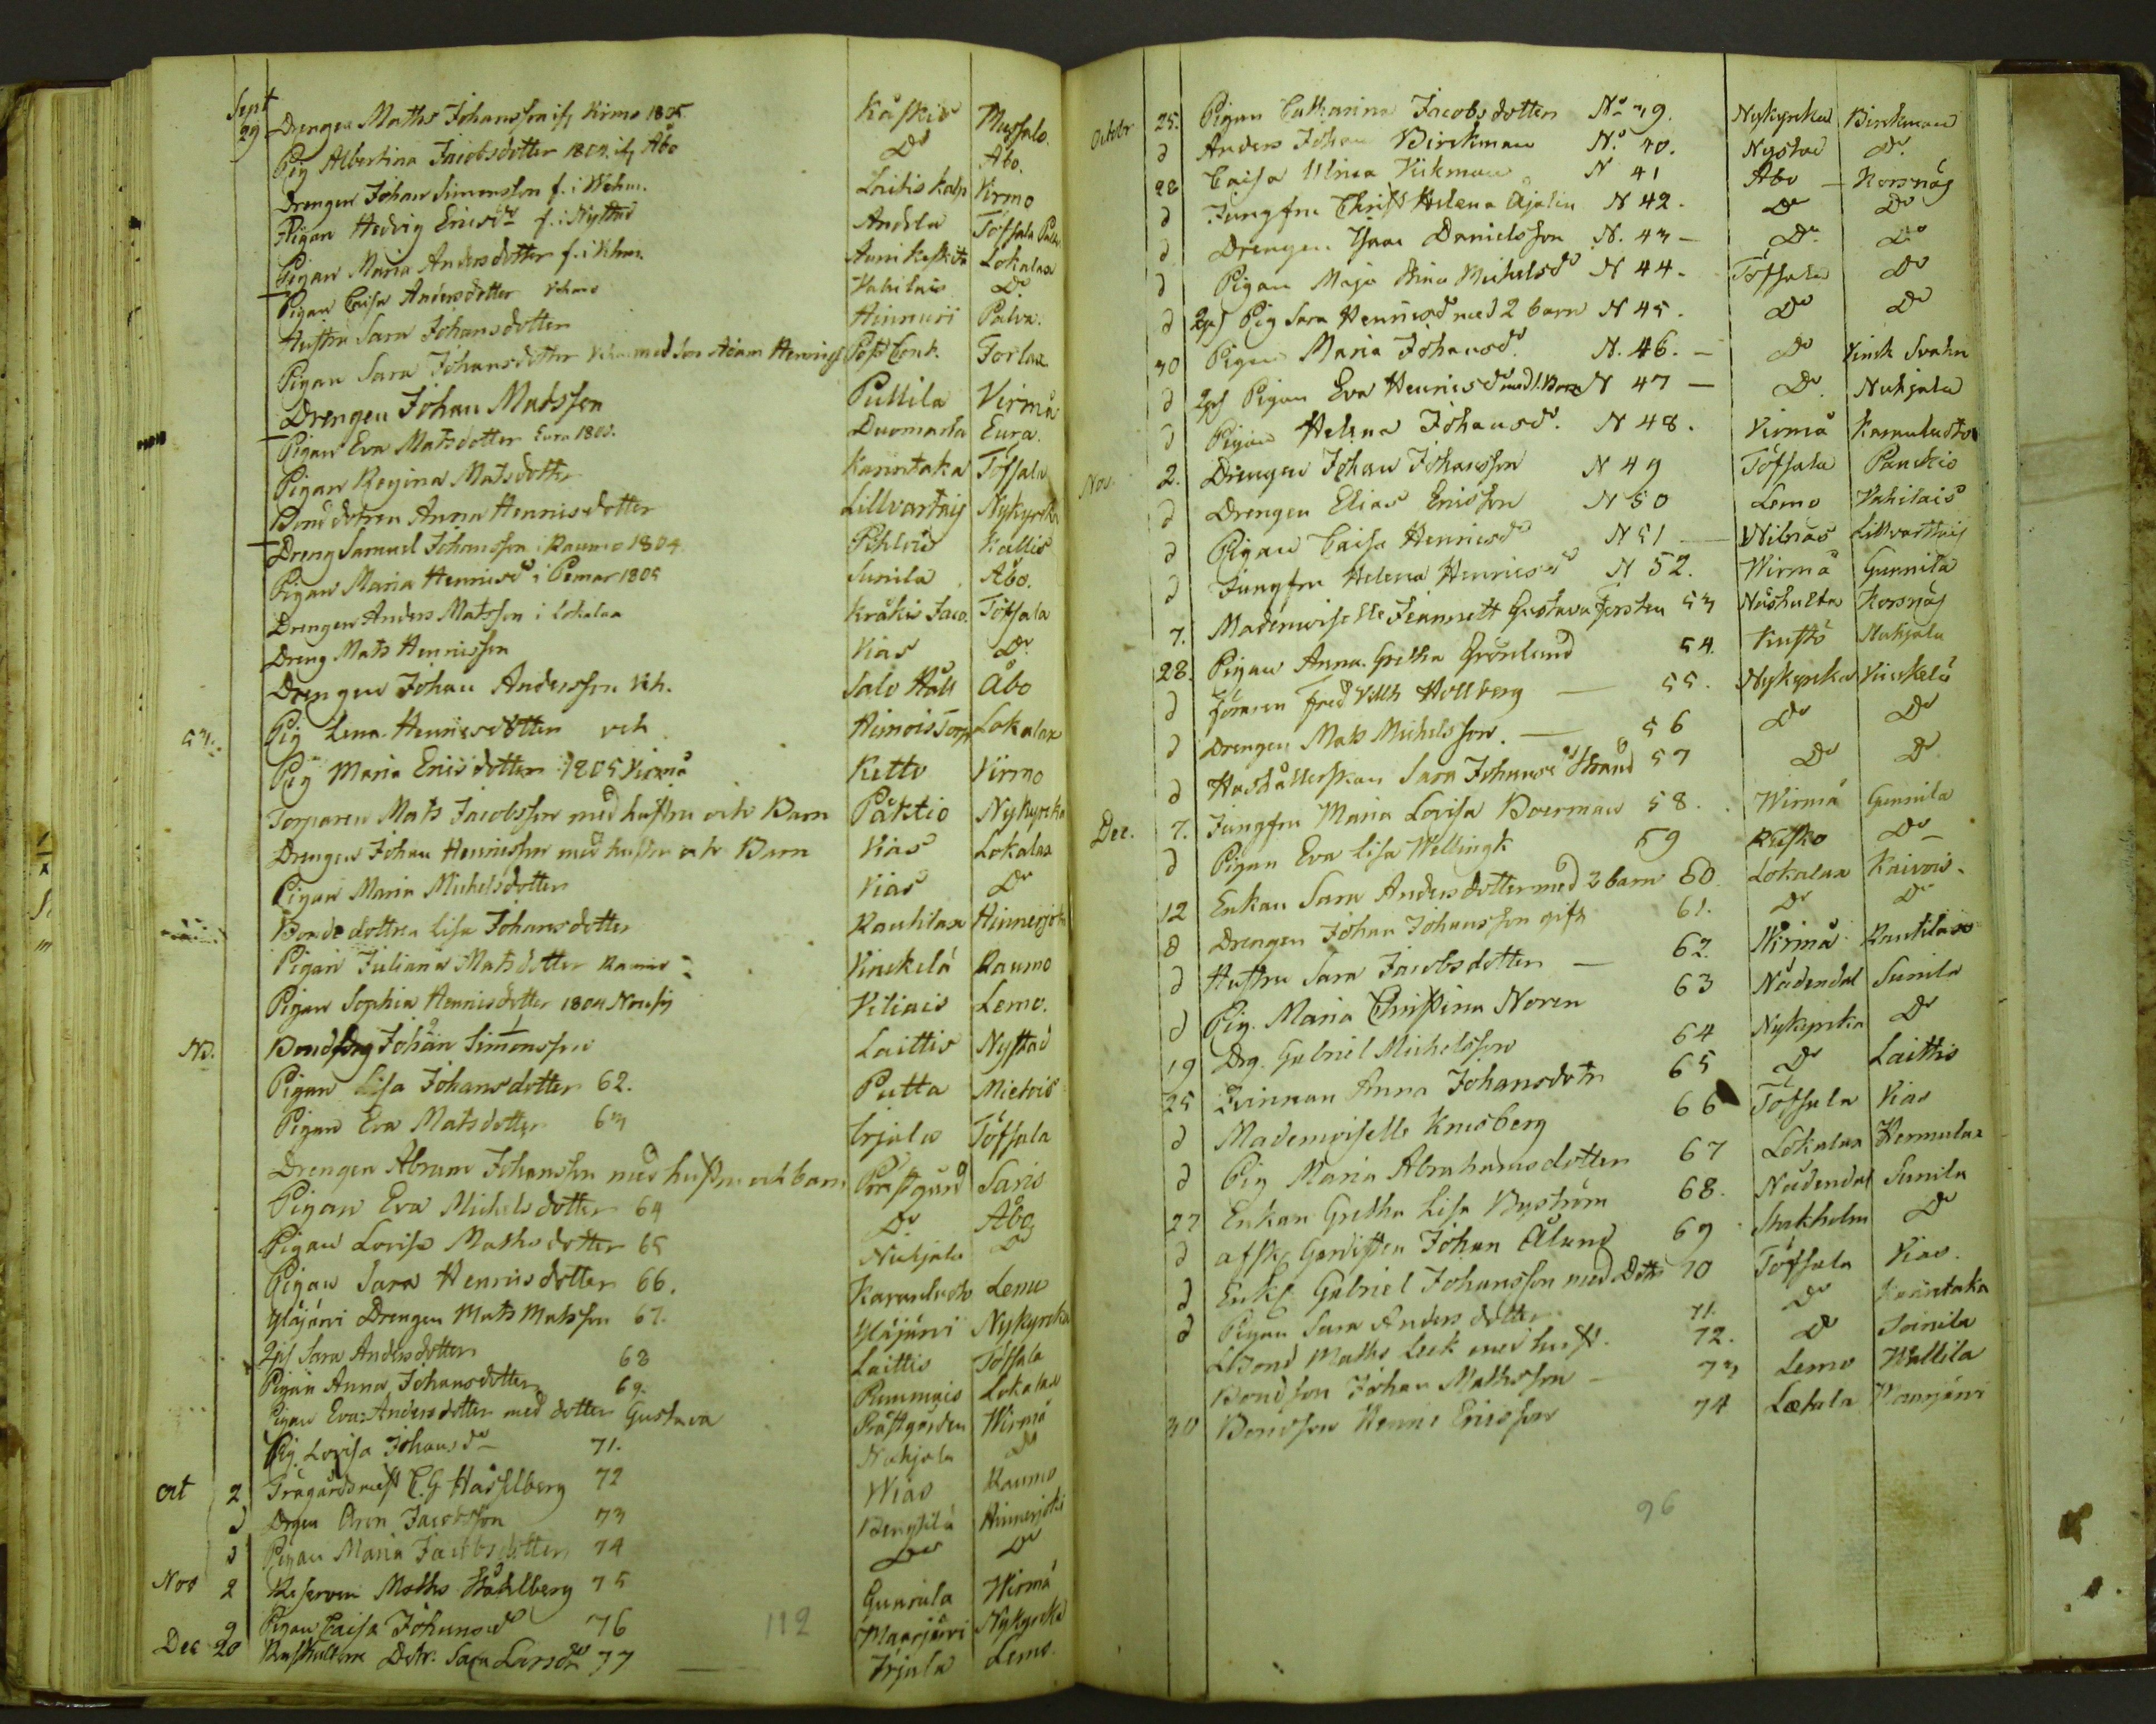 Sept 29 Drengen Maths Johansson if Virmo 1805. Kåskis Mussalo.
Pig Albertina Jacobsdotter 1804 if Åbo Do Åbo.
Drengen Johan Simonsson f. i Vehm. Laitis kap Virmo
Pigan Hedvig Ericsdr f. i Nystad Andela Töfsala
Pigan Maria Andersdotter f. i Vehm. Lokalax
Pigan Caisa Andersdotter Vehmo Vahilais Do
Hustru Sara Johansdotter Hinnuri Palva.
Pigan Sara Johansdotter med son Adam Post Cont. Torlax
Drengen Johan Matsson Puttila Virmå
Pigan Eva Matsdotter Eura 1805. Duomarla Eura.
Pigan Regina Matsdotter Kanntaka Töfsala
Bond dotren Anna Henricsdotter Lillvartsaij Nykyrka
Dreng Samuel Johansson i Raumo 1804 Pihlvis Kallis
Pigan Maria Henricsdr i Pemar 1805 Sunila Åbo.
Drengen Anders Matsson i Lokalax Kråkis Jaco. Töfsala
Dreng Mats Henricsson Vias Do
Drengen Johan Andersson Veh. Salo Håll Åbo
53. Pig Lena Henricsdotter veh Himois Torp Lokalax
Pig Maria Ericsdotter 1805 Virmå Ketto Virmo
Torparen Mats Jacobsson med hustru och Barn Påktio Nykyrka
Drengen Johan Henricsson med hustru och Barn Vias Lokalax
Pigan Maria Michelsdotter Vias Do
Bonde dottren Lisa Johansdotter Rautilax Hinnerjoki
Pigan Juliana Matsdotter Raumo Vinckelä Raumo
Pigan Sophia Henricsdotter 1804 Nousis Viliais Lemo.
No. Bondson Johan Simonsson Laittis Nystad
Pigan Lisa Johansdotter 62. Putta Mietois
Pigan Eva Matsdotter 63 Irjala Töfsala
Drengen Abram Johansson med hustru och barn Prästgård Saris
Pigan Eva Michelsdotter 64 Do Åbo
Pigan Lovisa Mathsdotter 65 Nuhjala Do
Pigan Sara Henricsdotter 66. Karanludto Lemo
Yläjärvi Drengen Mats Matsson 67. Yläjärvi Nykyrka
Pig Sara Andersdotter 68 Laittis Töfsala
Pigan Anna Johansdotter 69. Rummais Lokalax
Pigan Eva Andersdotter med dotter Gustava Prästgården Wirmå
Pig. Lovisa Johansdr 71. Nuhjala Do
Oct 2 Trägårdsmest C. G. Hasselberg 72 Wias Raumo
d Drgen Aron Jacobsson 73 Bengtilä Hinnerjoki
d Pigan Maria Jacobsdotter 74 Do Do
Nov 2 Reserven Maths Ståhlberg 75 Gunnila Wirmå
9 Pigan Caisa Johansdr 76 Maarjärvi Nykyrka
Dec 20 Rusthollare Dotr. Sara Larsdr 77 Irjala Lemo.
112
October 25. Pigan Catharina Jacobsdotter No 39. Nykyrka Birckman
d Anders Johan Birckman No. 40. Nystad Do.
28 Caisa Ulrica Vickman N 41 Åbo Korsnäs
d Jungfru Christ Helena Ajalin N 42. Do Do
d Drengen Isaac Danielsson N. 43 Do Do
d Pigan Maja Stina Michelsdr N 44. Töfsala Do
d Pig Sara Henricsdr med 2 barn N 45. Do Do
30 Pigan Maria Johansdr. N. 46. Do Vinck Svahn
d Pigan Eva Henricsdr med 1. Barn N 47 Do. Nuhjala
d Pigan Helena Johansdr. N 48. Virmå Karanludto
Nov. 2. Drengen Johan Johansson N 49 Töfsala Panckio
d Drengen Elias Ericsson N 50 Lemo Vahilais
d Pigan Caisa Henricsdr N 51 Wilnäs Lillvarttaij
d Jungfru Helena Henricsdr N 52. Wirmå Gunnila
7. Mademoiselle Jeannett Gustava 53 Näshulta Korsnäs
28. Pigan Anna Gretha Grönlund 54. Kustö Nuhjala
d Fred Vilh Hollberg 55. Nykyrka Vinckelä
d Drengen Mats Michelsson. 56 Do Do
d Hushållerskan Sara Johansdr Strand 57 Do Do
Dec. 7. Jungfru Maria Lovisa Boerman 58. Wirmå Gunnila
d Pigan Eva Lisa Wellingk 59 Rusko Do
12 Enkan Sara Andersdotter med 2 barn 60 Lokalax Kaivois.
d Drengen Johan Johansson gift 61. Do Do
d Hustru Sara Jacobsdotter 62. Wirmå Rautilax
d Pig. Maria Christina Noren 63 Nådendal Sunila
19 Drg. Gabriel Michelsson 64 Nykyrka Do
25 Qvinnan Anna Johansdotr 65 Do Laittis
d Mademoiselle Knusberg 66 Töfsala Vias
d Pig Maria Abrahamsdotter 67 Lokalax Vermulax
27 Enkan Gretha Lisa Byström 68. Nådendal Sunila
d afsk. Gardisten Johan Ålund 69 Stokholm Do
d Enkl. Gabriel Johansson med Dottr 70 Töfsala Vias.
d Pigan Sara Andersdotter 71. Do Kanntaka
Bond Maths Leek med hust. 72. Do Soinila
Bondson Johan Mathsson 73 Lemo Wallila
30 Bondson Henric Ericsson 74 Letala Maarjärvi
96